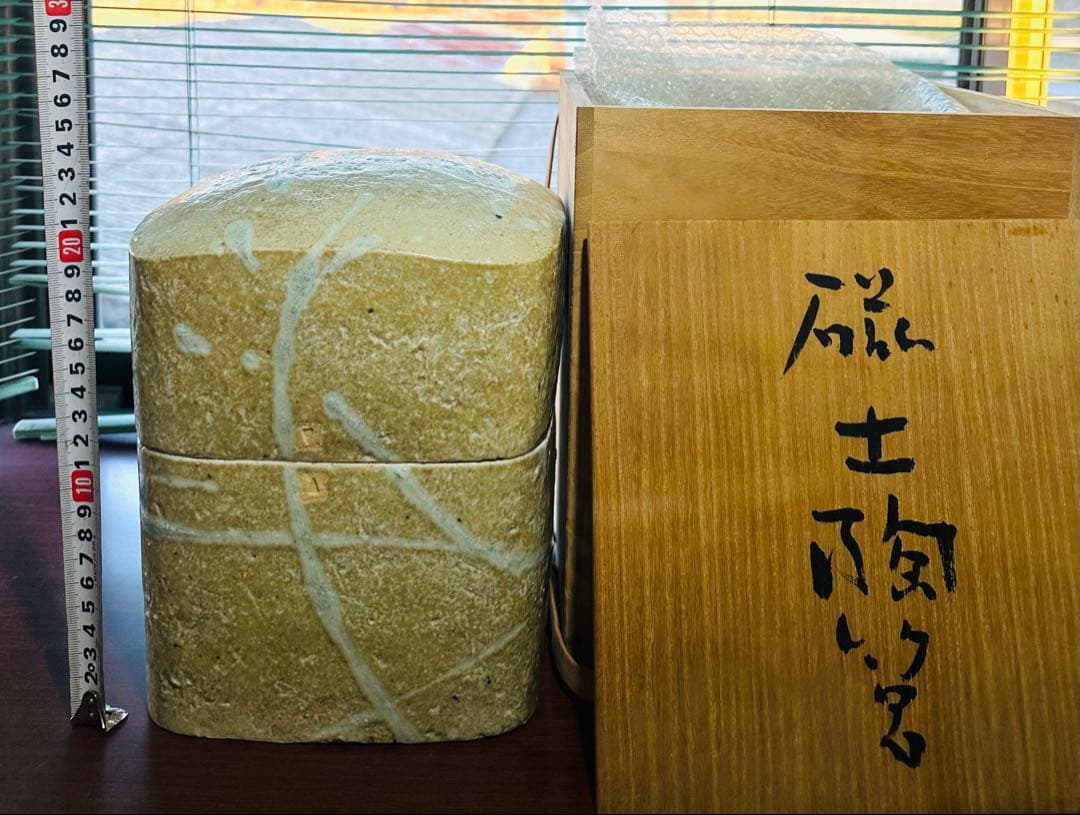 9 8 7 6 5 4 3 2 1 20 9 8 7 6 5 4 3 2 1 10 9 8 7 6 5 4 3 2
磁土陶筥